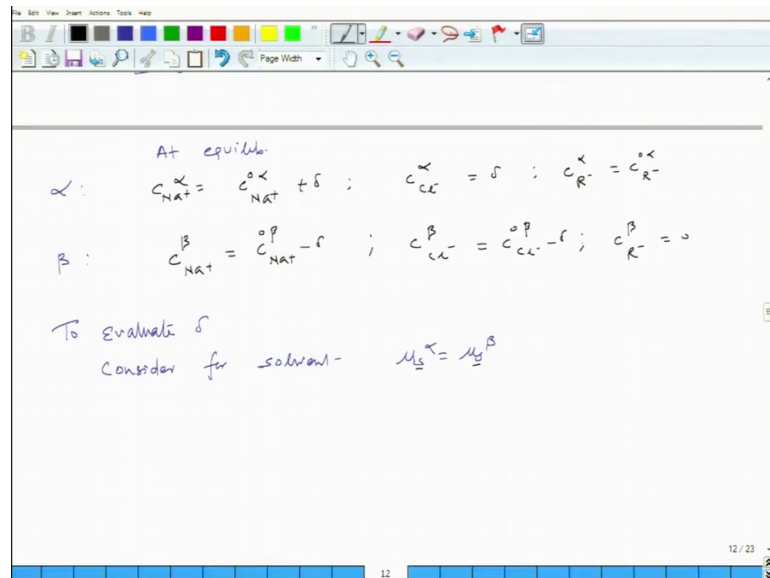 File Edit View Insert Actions Tools Help
B I
Page Width
At equilib.
α : c_{Na⁺}^{α} = c_{Na⁺}^{oα} + δ ; c_{Cl⁻}^{α} = δ ; c_{R⁻}^{α} = c_{R⁻}^{oα}
β : c_{Na⁺}^{β} = c_{Na⁺}^{oβ} - δ ; c_{Cl⁻}^{β} = c_{Cl⁻}^{oβ} - δ ; c_{R⁻}^{β} = 0
To evaluate δ
Consider for solvent - μ_{s}^{α} = μ_{s}^{β}
12 / 23
12